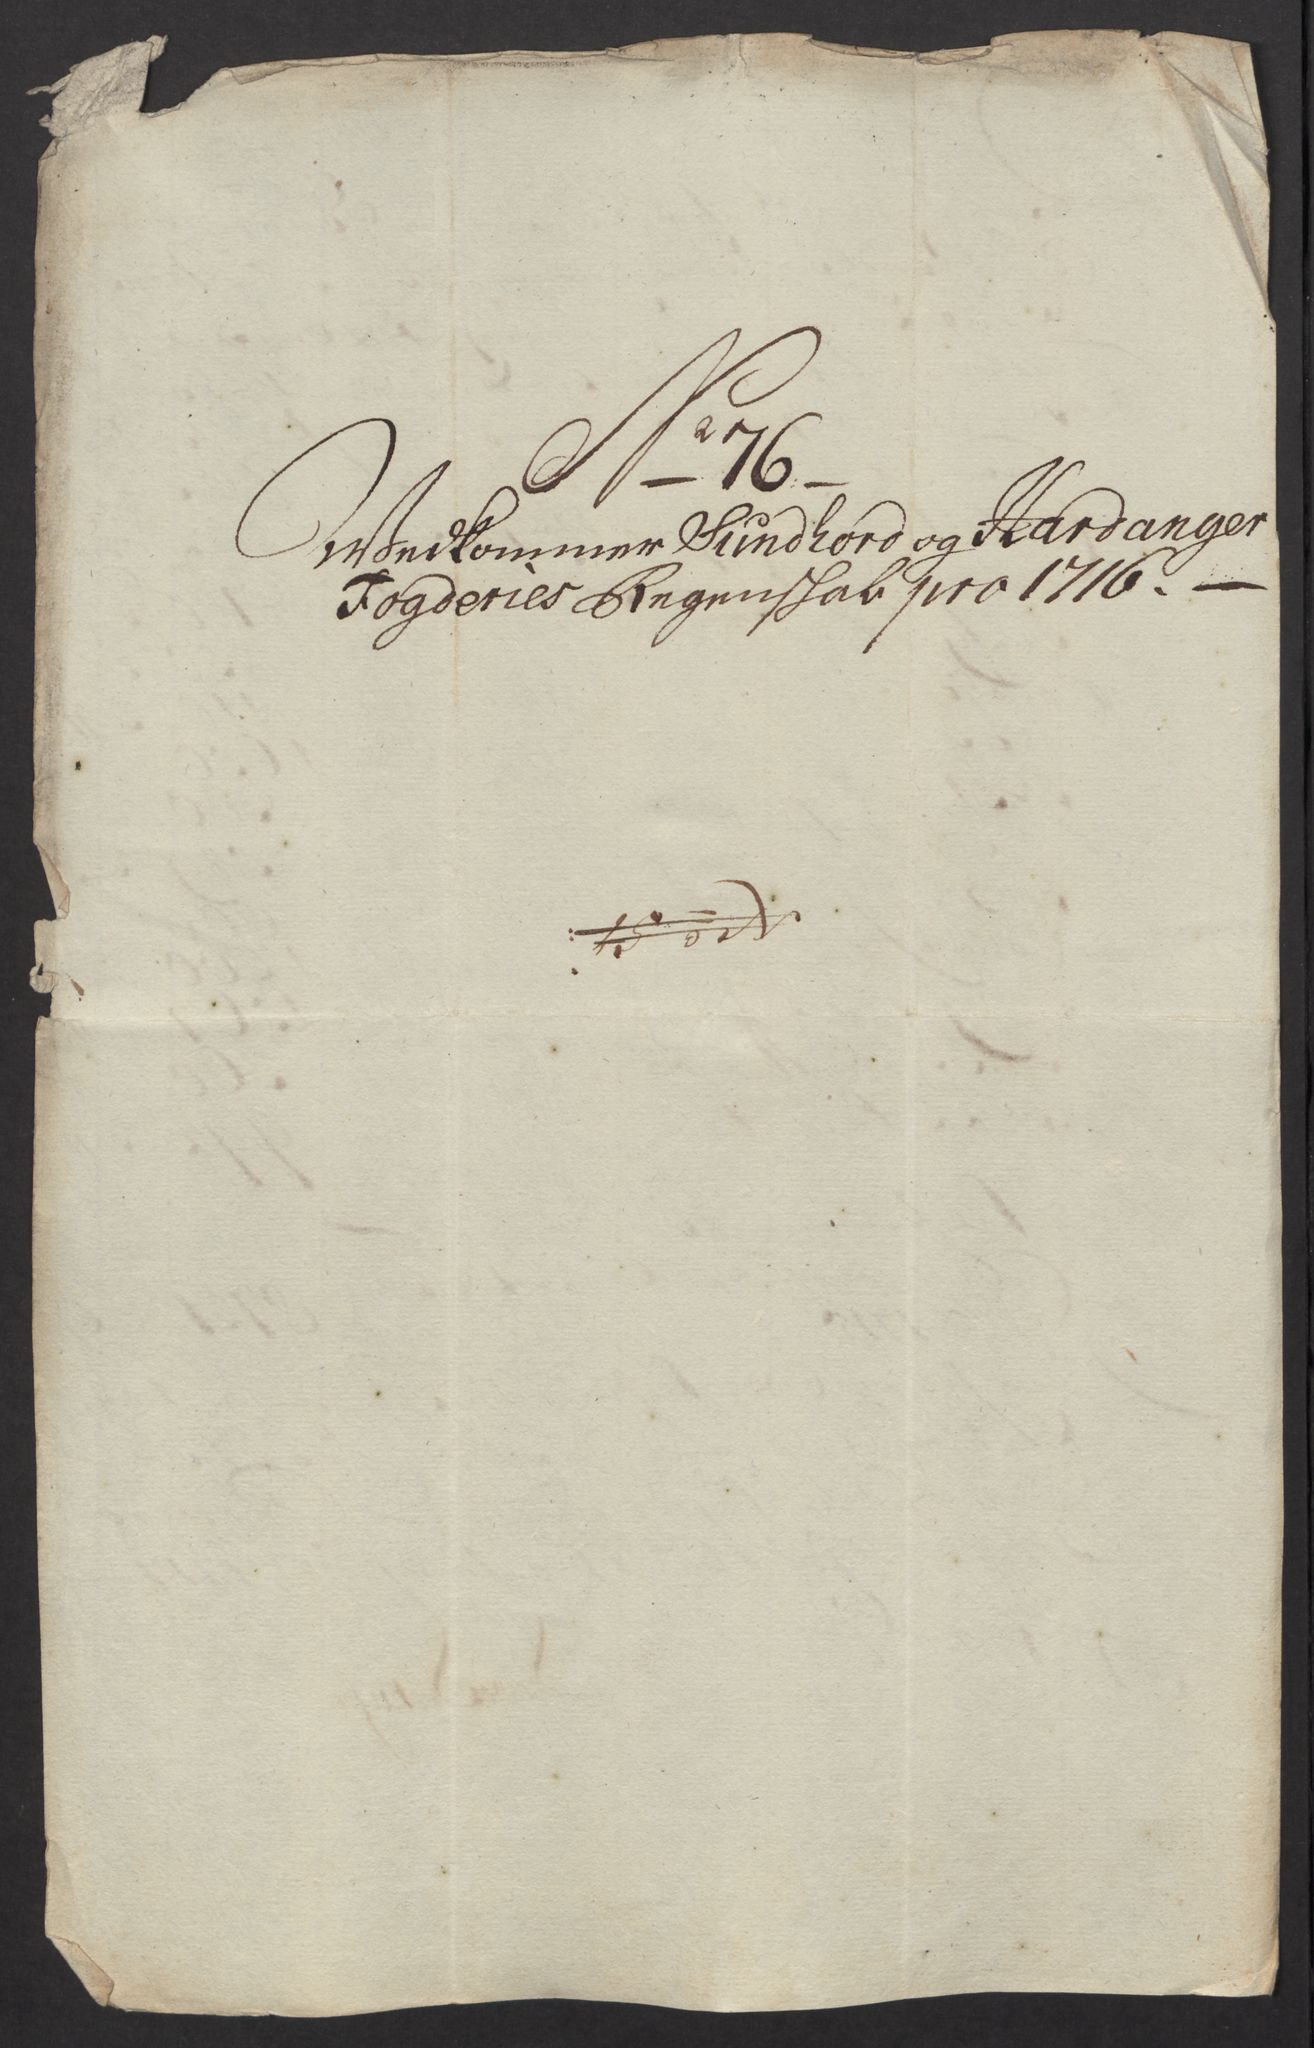 Nr 76
Wedkommer Sundhord og Hardanger
Fogderies Regenskab pro 1716.